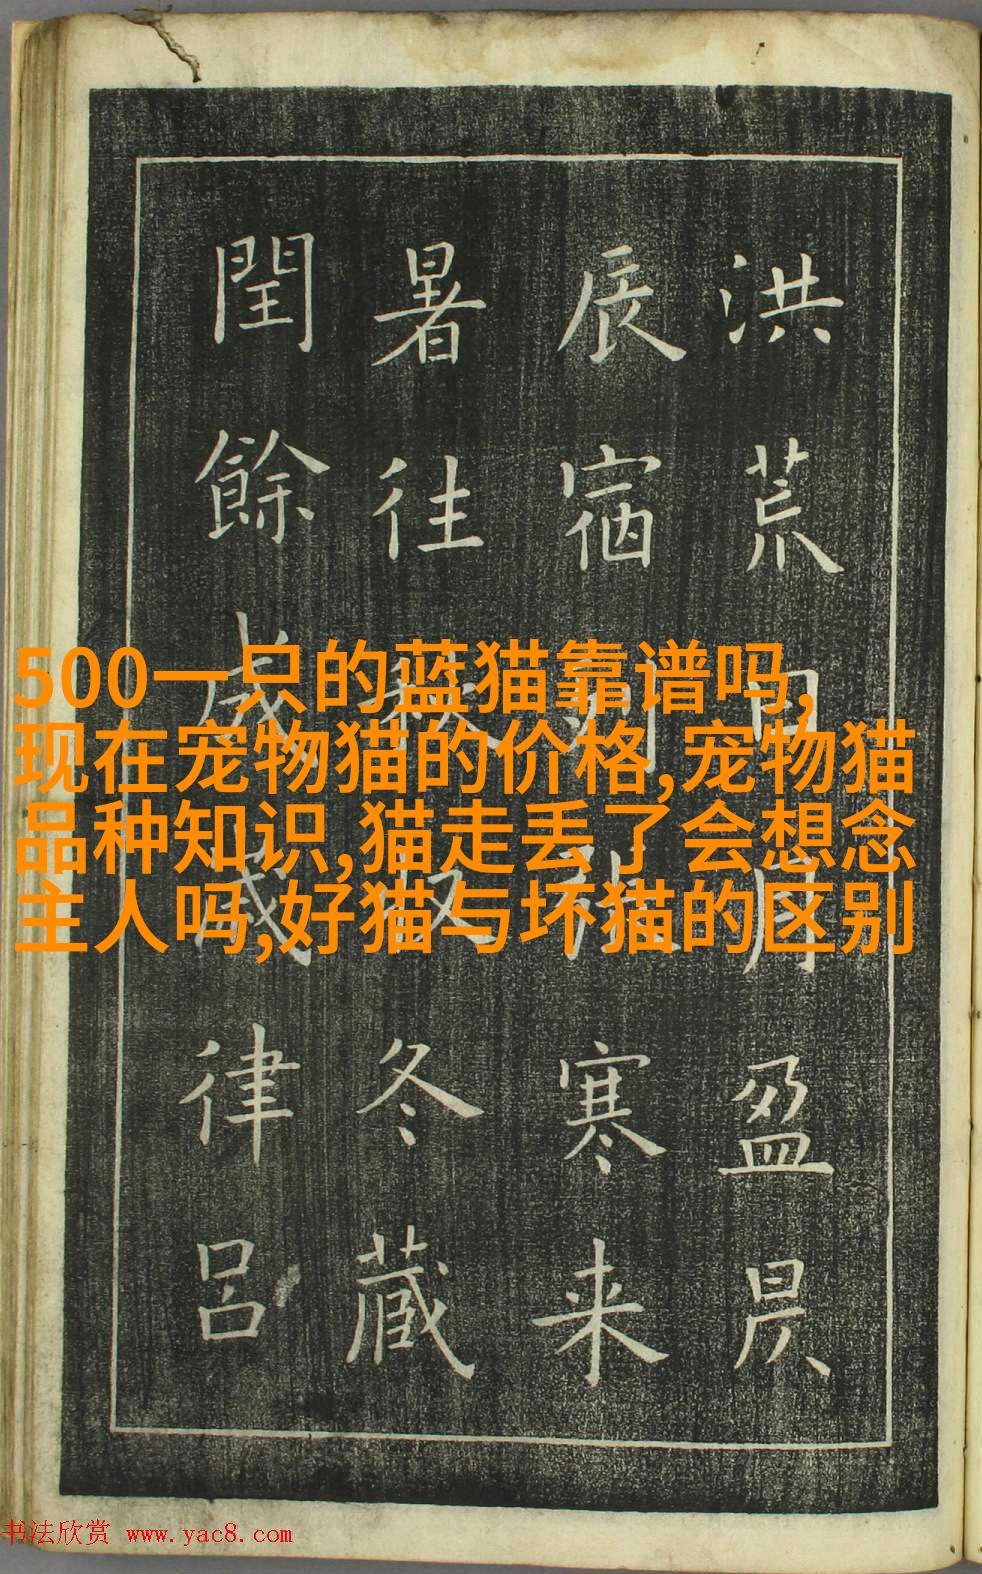 洪荒日月盈昃
辰宿列張寒来
暑往秋收冬藏
閏餘成歲律呂
500一只的蓝猫靠谱吗,
现在宠物猫的价格,宠物猫
品种知识,猫走丢了会想念
主人吗,好猫与坏猫的区别
书法欣赏 www.yac8.com